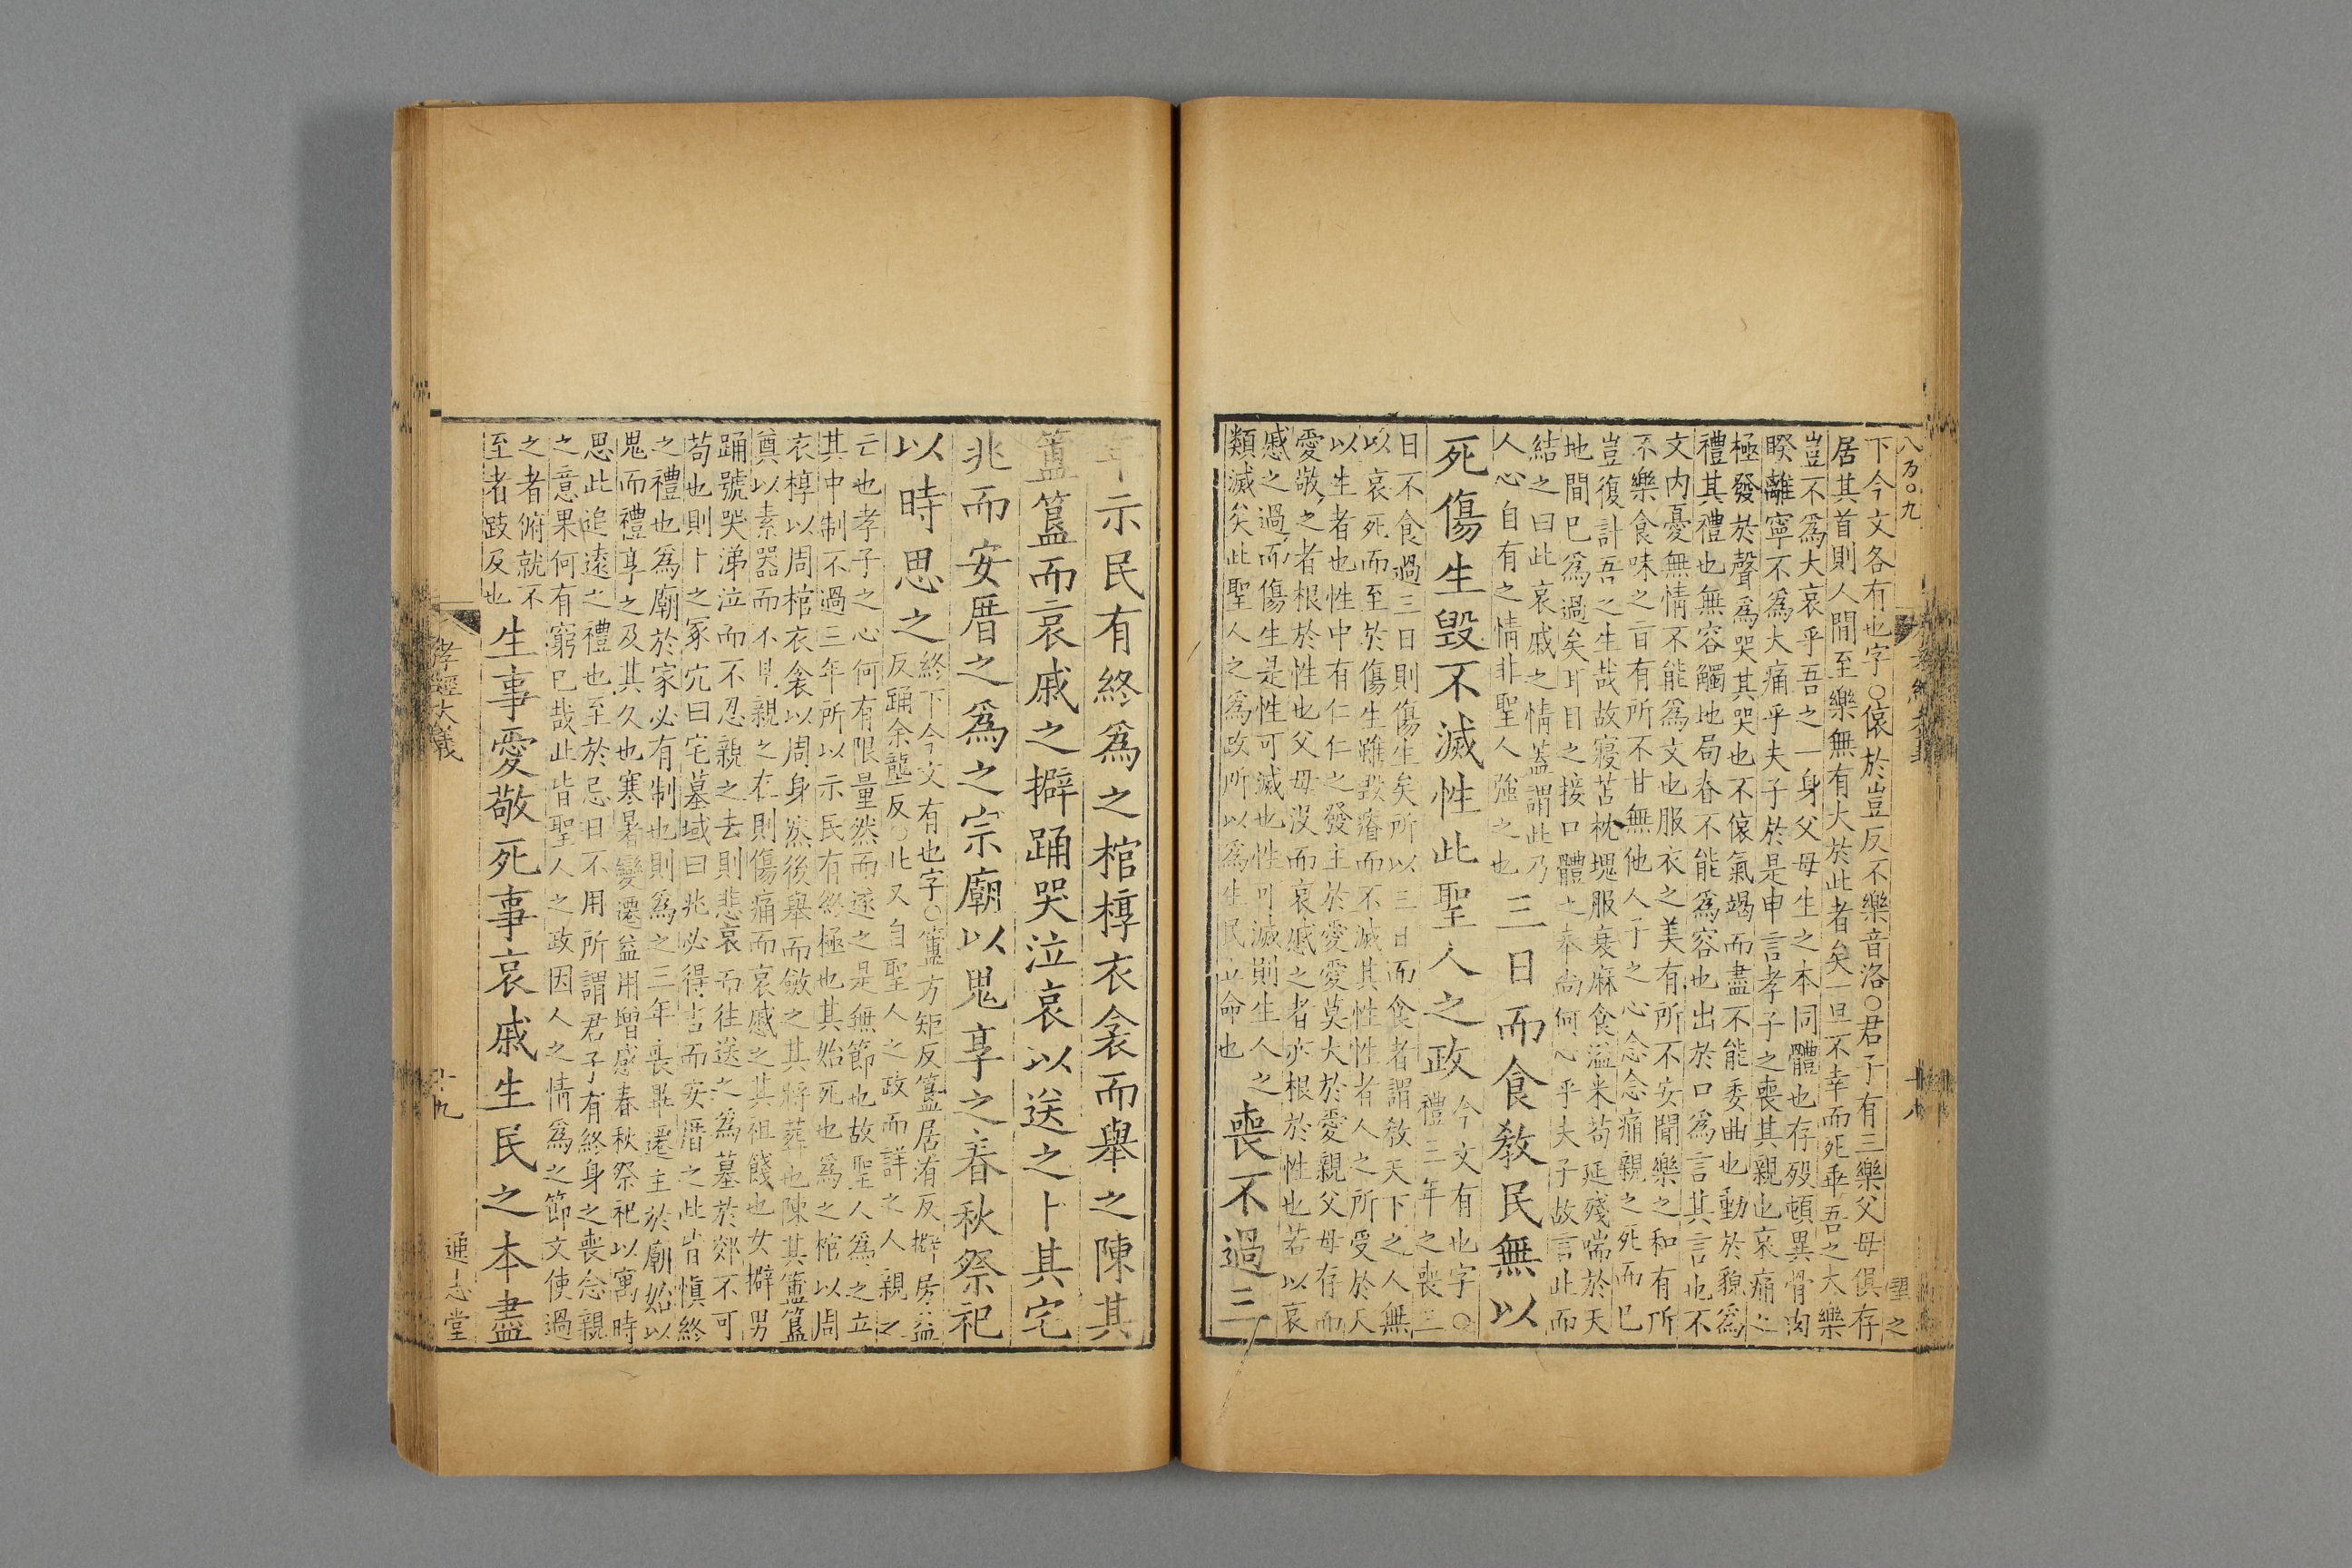 八万〇九
下今文各有也字○偯於豈反不樂音洛○君子有三樂父母俱存
居其首則人間至樂無有大於此者矣一旦不幸而死乖吾之大樂
豈不為大哀乎吾之一身父母生之本同體也存歿頓異骨肉
睽離寧不為大痛乎夫子於是申言孝子之喪其親也哀痛之
極發於聲為哭其哭也不偯氣竭而盡不能委曲也動於貌為
禮其禮也無容觸地局脊不能為容也出於口為言其言也不
文内憂無情不能為文也服衣之美有所不安聞樂之和有所
不樂食味之旨有所不甘無他人子之心念念痛親之死而已
豈復計吾之生哉故寢苫枕塊服衰麻食溢米苟延殘喘於天
地間已為過矣耳目之接口體之奉尚何心乎夫子故言此而
結之曰此哀戚之情蓋謂此乃
人心自有之情非聖人強之也
三日而食敎民無以
死傷生毀不滅性此聖人之政
今文有也字○
禮三年之喪三
日不食過三日則傷生矣所以三日而食者謂敎天下之人無
以哀死而至於傷生雖毀瘠而不滅其性性者人之所受於天
以生者也性中有仁仁之發主於愛愛莫大於愛親父母存而
愛敬之者根於性也父母沒而哀戚之者亦根於性也若以哀
慼之過而傷生是性可滅也性可滅則生人之
類滅矣此聖人之為政所以為生民立命也
喪不過三
年示民有終為之棺椁衣衾而舉之陳其
簠簋而哀戚之擗踊哭泣哀以送之卜其宅
兆而安厝之為之宗廟以鬼享之春秋祭祀
以時思之
終下今文有也字○簠方矩反簋居洧反擗房益
反踊余隴反○此又自聖人之政而詳之人親之
亡也孝子之心何有限量然而遂之是無節也故聖人為之立
其中制不過三年所以示民有終極也其始死也為之棺以周
衣椁以周棺衣衾以周身然後舉而斂之其將葬也陳其簠簋
奠以素器而不見親之在則傷痛而哀慼之其祖餞也女擗男
踊號哭涕泣而不忍親之去則悲哀而往送之為墓於郊不可
苟也則卜之冢穴曰宅墓域曰兆必得吉而安厝之此皆慎終
之禮也為廟於家必有制也則為之三年喪畢遷主於廟始以
鬼而禮享之及其久也寒暑變遷益用增感春秋祭祀以寓時
思此追遠之禮也至於忌日不用所謂君子有終身之喪念親
之意果何有窮已哉此皆聖人之政因人之情為之節文使過
之者俯就不
至者跂及也
生事愛敬死事哀戚生民之本盡
孝經大義
十九
通志堂